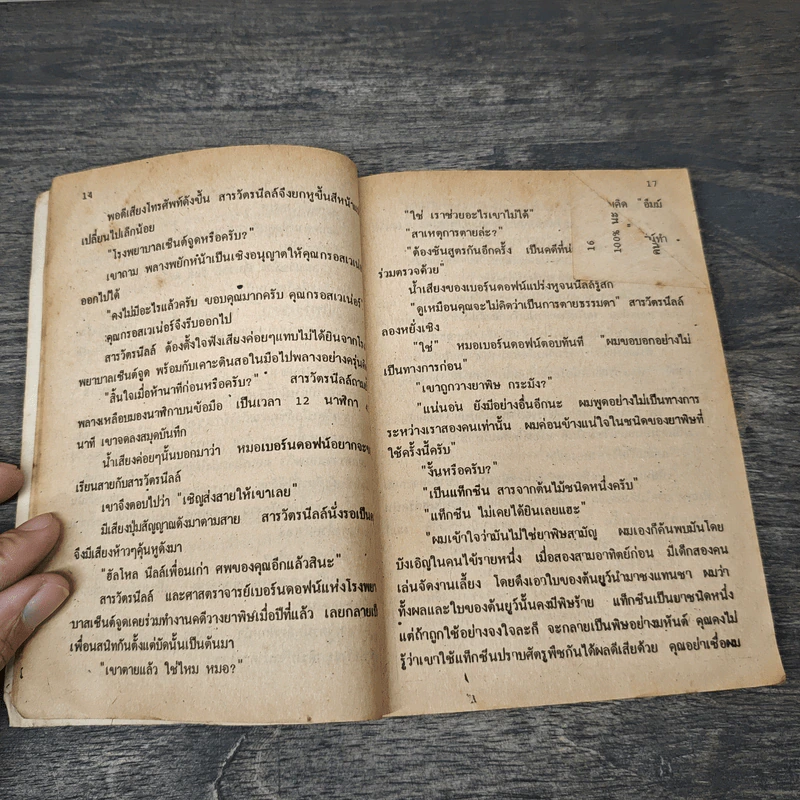 14
พอดีเสียงโทรศัพท์ดังขึ้น สารวัตรนีลล์จึงยกหูขึ้นสีหน้า
เปลี่ยนไปเล็กน้อย
"โรงพยาบาลเซ็นต์จูดหรือครับ?"
เขาถาม พลางพยักหน้าเป็นเชิงอนุญาตให้คุณกรอสเวเน
ออกไปได้
"คงไม่มีอะไรแล้วครับ ขอบคุณมากครับ คุณกรอสเวเน่อร์"
คุณกรอสเวเน่อร์จึงรีบออกไป
สารวัตรนีลล์ ต้องตั้งใจฟังเสียงค่อยๆแทบไม่ได้ยินจากโร
พยาบาลเซ็นต์จูด พร้อมกับเคาะดินสอในมือไปพลางอย่างครุ่น
"สิ้นใจเมื่อห้านาทีก่อนหรือครับ?" สารวัตรนีลล์ถาม
พลางเหลือบมองนาฬิกาบนข้อมือ เป็นเวลา 12 นาฬิกา
นาที เขาจดลงสมุดบันทึก
น้ำเสียงค่อยๆนั้นบอกมาว่า หมอเบอร์นดอฟน์อยากจะ
เรียนสายกับสารวัตรนีลล์
เขาจึงตอบไปว่า "เชิญส่งสายให้เขาเลย"
มีเสียงปุ่มสัญญาณดังมาตามสาย สารวัตรนีลล์นั่งรอเป็น
จึงมีเสียงห้าวๆคุ้นหูดังมา
"ฮัลโหล นีลล์เพื่อนเก่า ศพของคุณอีกแล้วสินะ"
สารวัตรนีลล์ และศาสตราจารย์เบอร์นดอฟน์แห่งโรงพยา
บาลเซ็นต์จูดเคยร่วมทำงานคดีวางยาพิษเมื่อปีที่แล้ว เลยกลาย
เพื่อนสนิทกันตั้งแต่บัดนั้นเป็นต้นมา
"เขาตายแล้ว ใช่ไหม หมอ?"
17
"ใช่ เราช่วยอะไรเขาไม่ได้"
"สาเหตุการตายล่ะ?"
"ต้องชันสูตรกันอีกครั้ง เป็นคดีที่
ร่วมตรวจด้วย"
น้ำเสียงของเบอร์นดอฟน์แปร่งหูจนนีลล์รู้สึก
"ดูเหมือนคุณจะไม่คิดว่าเป็นการตายธรรมดา" สารวัตรนีลล์
ลองหยั่งเชิง
"ใช่" หมอเบอร์นดอฟน์ตอบทันที "ผมขอบอกอย่างไม่
เป็นทางการก่อน"
"เขาถูกวางยาพิษ กระมัง?"
"แน่นอน ยังมีอย่างอื่นอีกนะ ผมพูดอย่างไม่เป็นทางการ
ระหว่างเราสองคนเท่านั้น ผมค่อนข้างแน่ใจในชนิดของยาพิษที่
ใช้ครั้งนี้ครับ"
"งั้นหรือครับ?"
"เป็นแท็กซีน สารจากต้นไม้ชนิดหนึ่งครับ"
"แท็กซีน ไม่เคยได้ยินเลยแฮะ"
"ผมเข้าใจว่ามันไม่ใช่ยาพิษสามัญ ผมเองก็ค้นพบมันโดย
บังเอิญในคนไข้รายหนึ่ง เมื่อสองสามอาทิตย์ก่อน มีเด็กสองคน
เล่นจัดงานเลี้ยง โดยดึงเอาใบของต้นยูว์นำมาชงแทนชา ผมว่า
ทั้งผลและใบของต้นยูว์นั้นคงมีพิษร้าย แท็กซีนเป็นยาชนิดหนึ่ง
แต่ถ้าถูกใช้อย่างจงใจละก็ จะกลายเป็นพิษอย่างมหันต์ คุณคงไม่
รู้ว่าเขาใช้แท็กซีนปราบศัตรูพืชกันได้ผลดีเสียด้วย คุณอย่าเชื่อผม
16
100% นะ
คิด "อืมม์